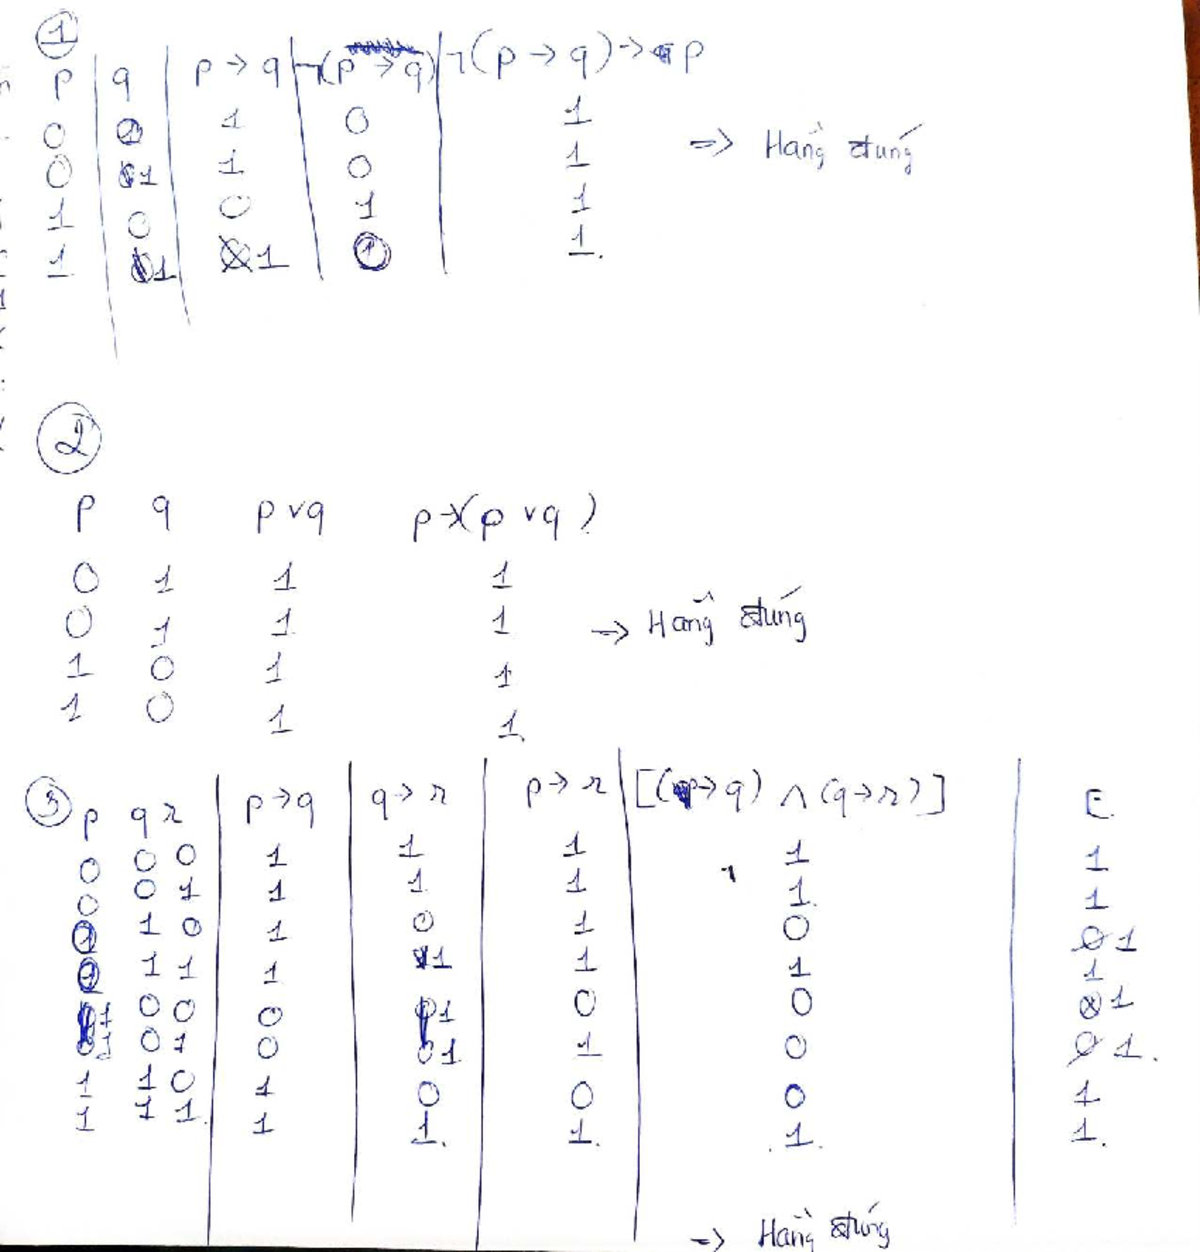 ①
p q p → q ¬(p → q) ¬(p → q) → p
0 0 1 0 1
0 1 1 0 1 => Hằng đúng
1 0 0 1 1
1 1 1 0 1.
②
p q p ∨ q p → (p ∨ q)
0 1 1 1
0 1 1 1 => Hằng đúng
1 0 1 1
1 0 1 1
③ p q r p → q q → r p → r [(p → q) ∧ (q → r)] E
0 0 0 1 1 1 1 1
0 0 1 1 1 1 1 1
0 1 0 1 0 1 0 1
0 1 1 1 1 1 1 1
1 0 0 0 1 0 0 1
1 0 1 0 1 1 0 1.
1 1 0 1 0 0 0 1
1 1 1. 1 1. 1. 1. 1.
=> Hằng đúng